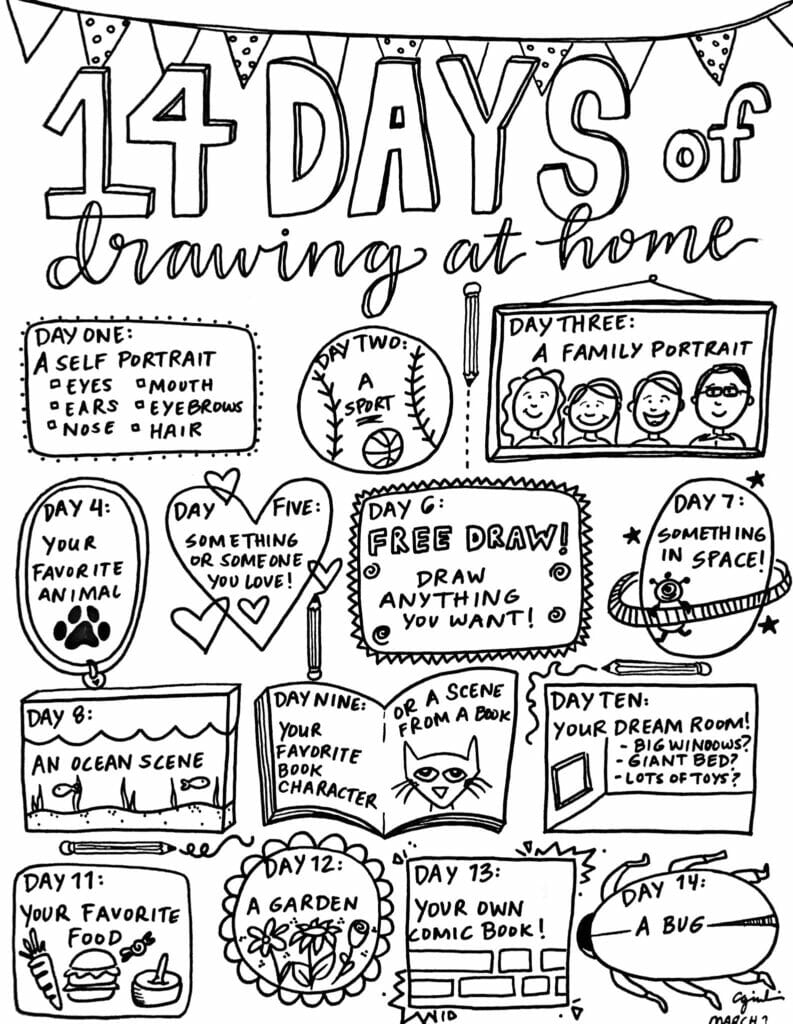 14 DAYS of
drawing at home
DAY ONE:
A SELF PORTRAIT
EYES MOUTH
EARS EYEBROWS
NOSE HAIR
DAY TWO:
A
SPORT
DAY THREE:
A FAMILY PORTRAIT
DAY 4:
YOUR
FAVORITE
ANIMAL
DAY FIVE:
SOMETHING
OR SOMEONE
YOU LOVE!
DAY 6:
FREE DRAW!
DRAW
ANYTHING
YOU WANT!
DAY 7:
SOMETHING
IN SPACE!
DAY 8:
AN OCEAN SCENE
DAY NINE:
YOUR
FAVORITE
BOOK
CHARACTER
OR A SCENE
FROM A BOOK
DAY TEN:
YOUR DREAM ROOM!
- BIG WINDOWS?
- GIANT BED?
- LOTS OF TOYS?
DAY 11:
YOUR FAVORITE
FOOD
DAY 12:
A GARDEN
DAY 13:
YOUR OWN
COMIC BOOK!
DAY 14:
A BUG
MARCH